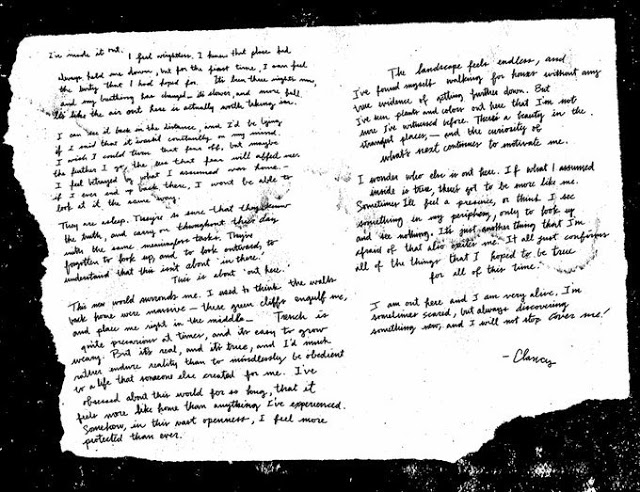 I've made it out. I feel weightless. I knew that place had
always held me down, but for the first time, I can feel
the unity that I had hoped for. It's been three nights now,
and my breathing has changed – it's slower, and more full.
It's like the air out here is actually worth taking in.
I can see it back in the distance, and I'd be lying
if I said that it wasn't constantly on my mind.
I wish I could turn that fear off, but maybe
the further I go, the less that fear will affect me.
I feel betrayed by what I assumed was home –
if I ever end up back there, I won't be able to
look at it the same way.
They are asleep. They're so sure that they know
the truth, and carry on throughout their day
with the same meaningless tasks. They're
forgotten to look up, and to look outward, to
understand that this isn't about 'in there.'
This is about 'out here.'
This new world surrounds me. I used to think the walls
back home were massive – these green cliffs engulf me,
and place me right in the middle – Trench is
quite precarious at times, and it's easy to grow
weary. But it's real, and it's true, and I'd much
rather endure reality than to mindlessly be obedient
to a life that someone else created for me. I've
obsessed about this world for so long, that it
feels more like home than anything I've experienced.
Somehow, in this vast openness, I feel more
protected than ever.
The landscape feels endless, and
I've found myself walking for hours without any
true evidence of getting further down. But
I've seen plants and colors out here that I'm not
sure I've witnessed before. There's a beauty in the
strangest places – and the curiosity of
what's next continues to motivate me.
I wonder who else is out here. If what I assumed
inside is true, there's got to be more like me.
Sometimes I'll feel a presence, or think I see
something in my periphery, only to look up
and see nothing. It's just another thing that I'm
afraid of that also excites me. It all just confirms
all of the things that I hoped to be true
for all of this time.
I am out here and I am very alive, I'm
sometimes scared, but always discovering
something new, and I will not stop. Cover me!
– Clancy